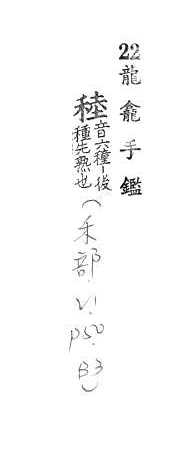 22龍龕手鑑
稑音六穜-後種先熟也(禾部.V1.P50.B3)